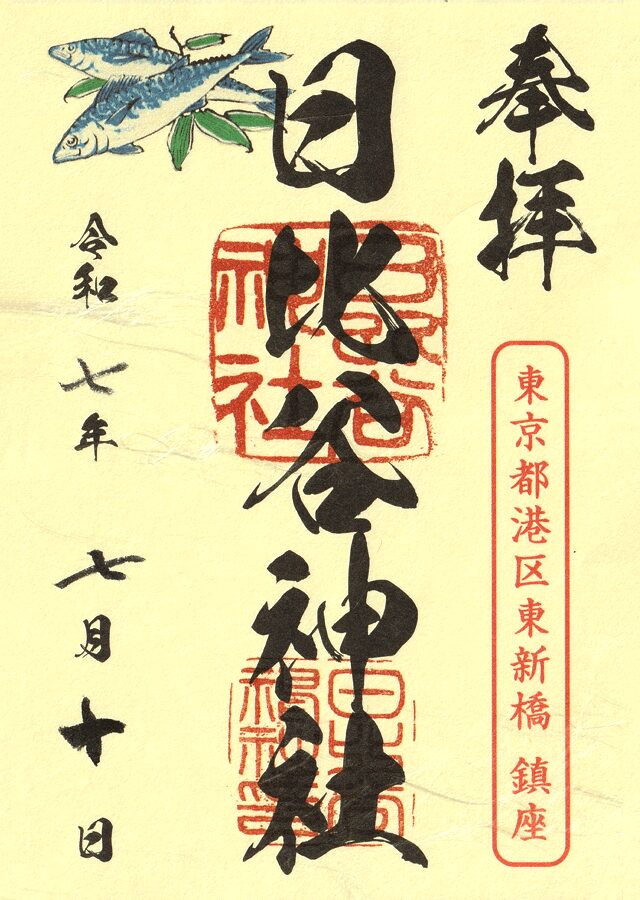 奉拝
東京都港区東新橋 鎮座
日比谷神社
令和 七年 七月 十日